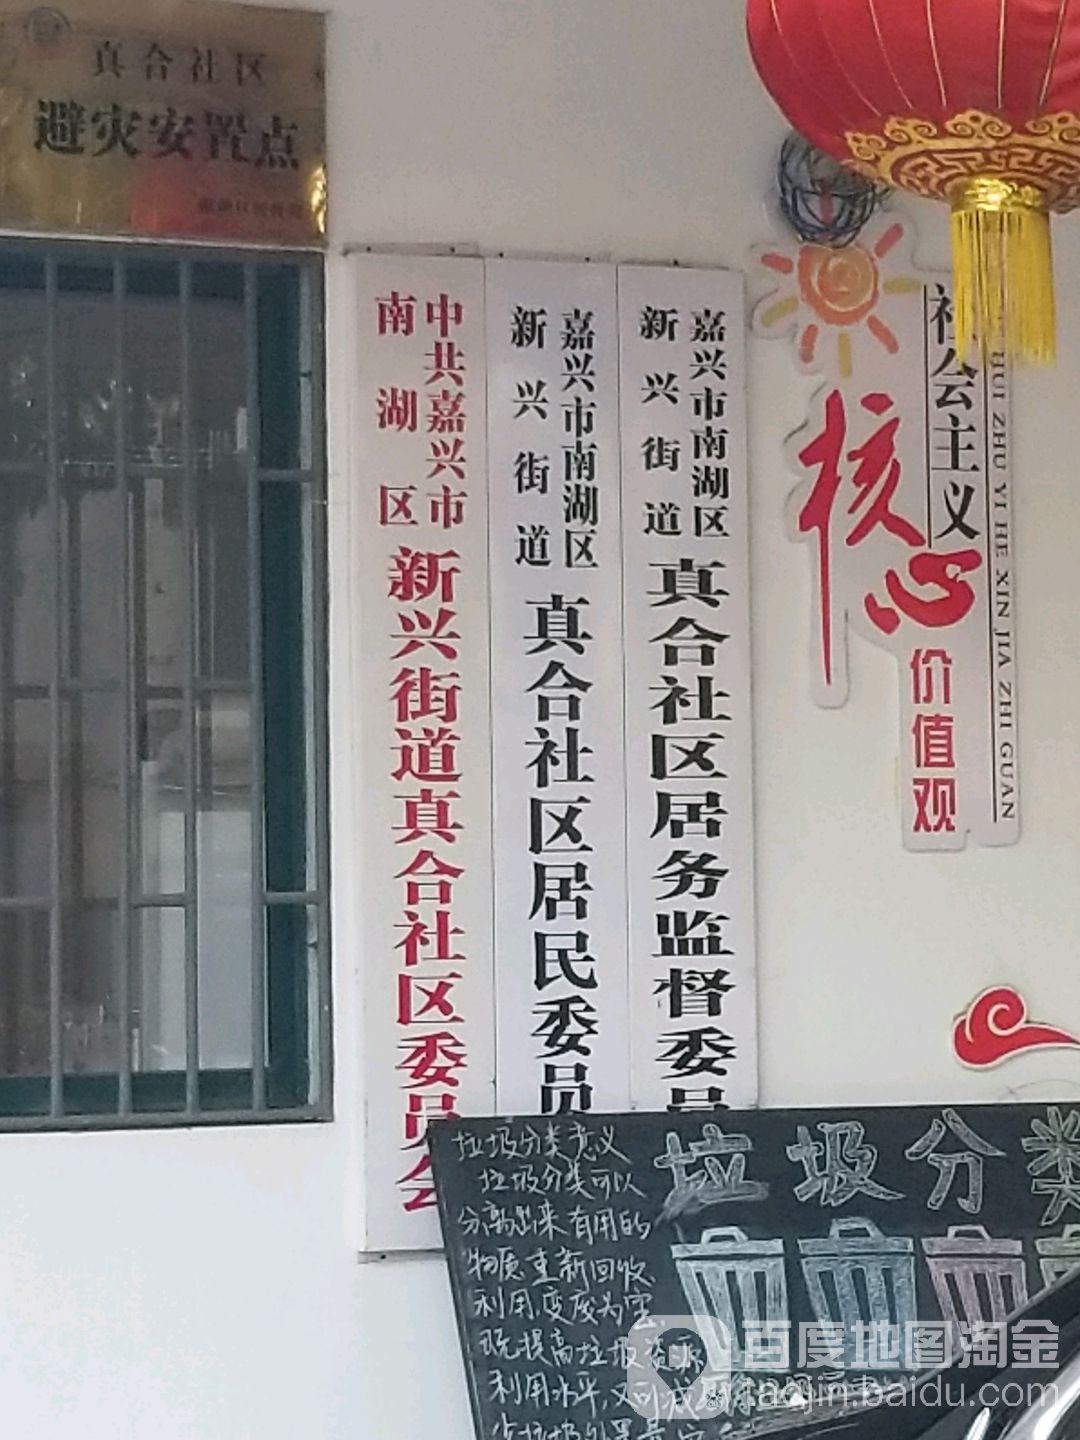 真合社区
避灾安置点
中共嘉兴市
南湖区
新兴街道真合社区委员会
嘉兴市南湖区
新兴街道
真合社区居民委员
嘉兴市南湖区
新兴街道
真合社区居务监督委员
社会主义
核心
价值观
HUI ZHU YI HE XIN JIA ZHI GUAN
垃圾分类
垃圾分类意义
垃圾分类可以
分离出来有用的
物质重新回收
利用,变废为宝
既提高垃圾资源
利用水平,又可减
百度地图淘金
taojin.baidu.com